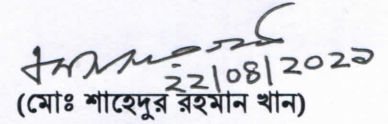 22/08/2023
(মোঃ শাহেদুর রহমান খান)